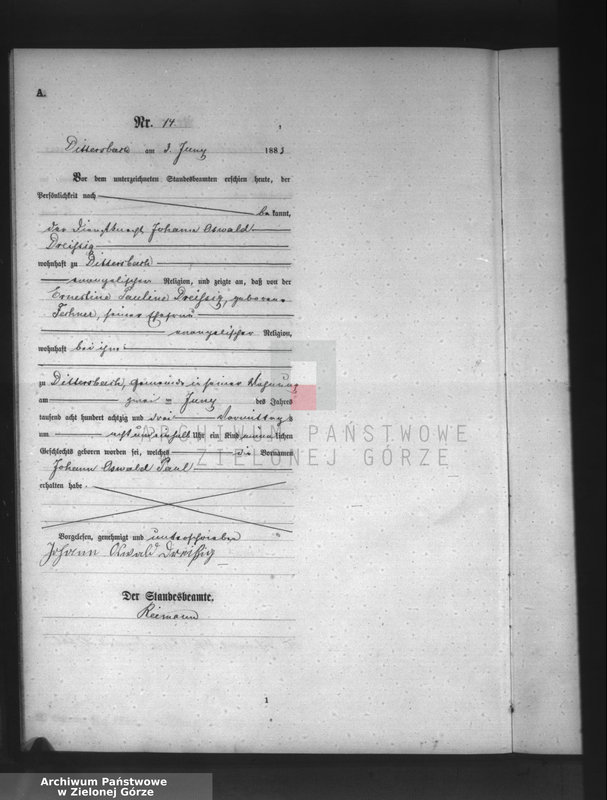 A.
Nr. 14
Dittersbach am 3. Juny 1883
Vor dem unterzeichneten Standesbeamten erschien heute, der
Persönlichkeit nach
be kannt,
der Dienstknecht Johann Oswald
Dreißig
wohnhaft zu Dittersbach
evangelischer Religion, und zeigte an, daß von der
Ernestine Pauline Dreißig, geborene
seiner Ehefrau
evangelischer Religion,
wohnhaft bei ihm
zu Dittersbach, Gemeinde in seiner Wohnung
am zwei Juny des Jahres
tausend acht hundert achtzig und drei Vormittags
um acht und einhalb Uhr ein Kind männlichen
Geschlechts geboren worden sei, welches die Vornamen
Johann Oswald Paul
erhalten habe.
Vorgelesen, genehmigt und unterschrieben
Johann Oswald Dreißig
Der Standesbeamte.
Reimann
1
ARCHIWUM PAŃSTWOWE
W ZIELONEJ GÓRZE
Archiwum Państwowe
w Zielonej Górze